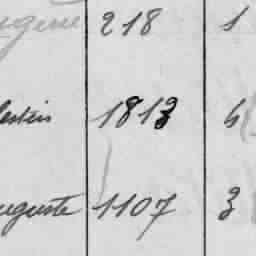 ugène 218 1
lestin 1813 4
uguste 1107 3